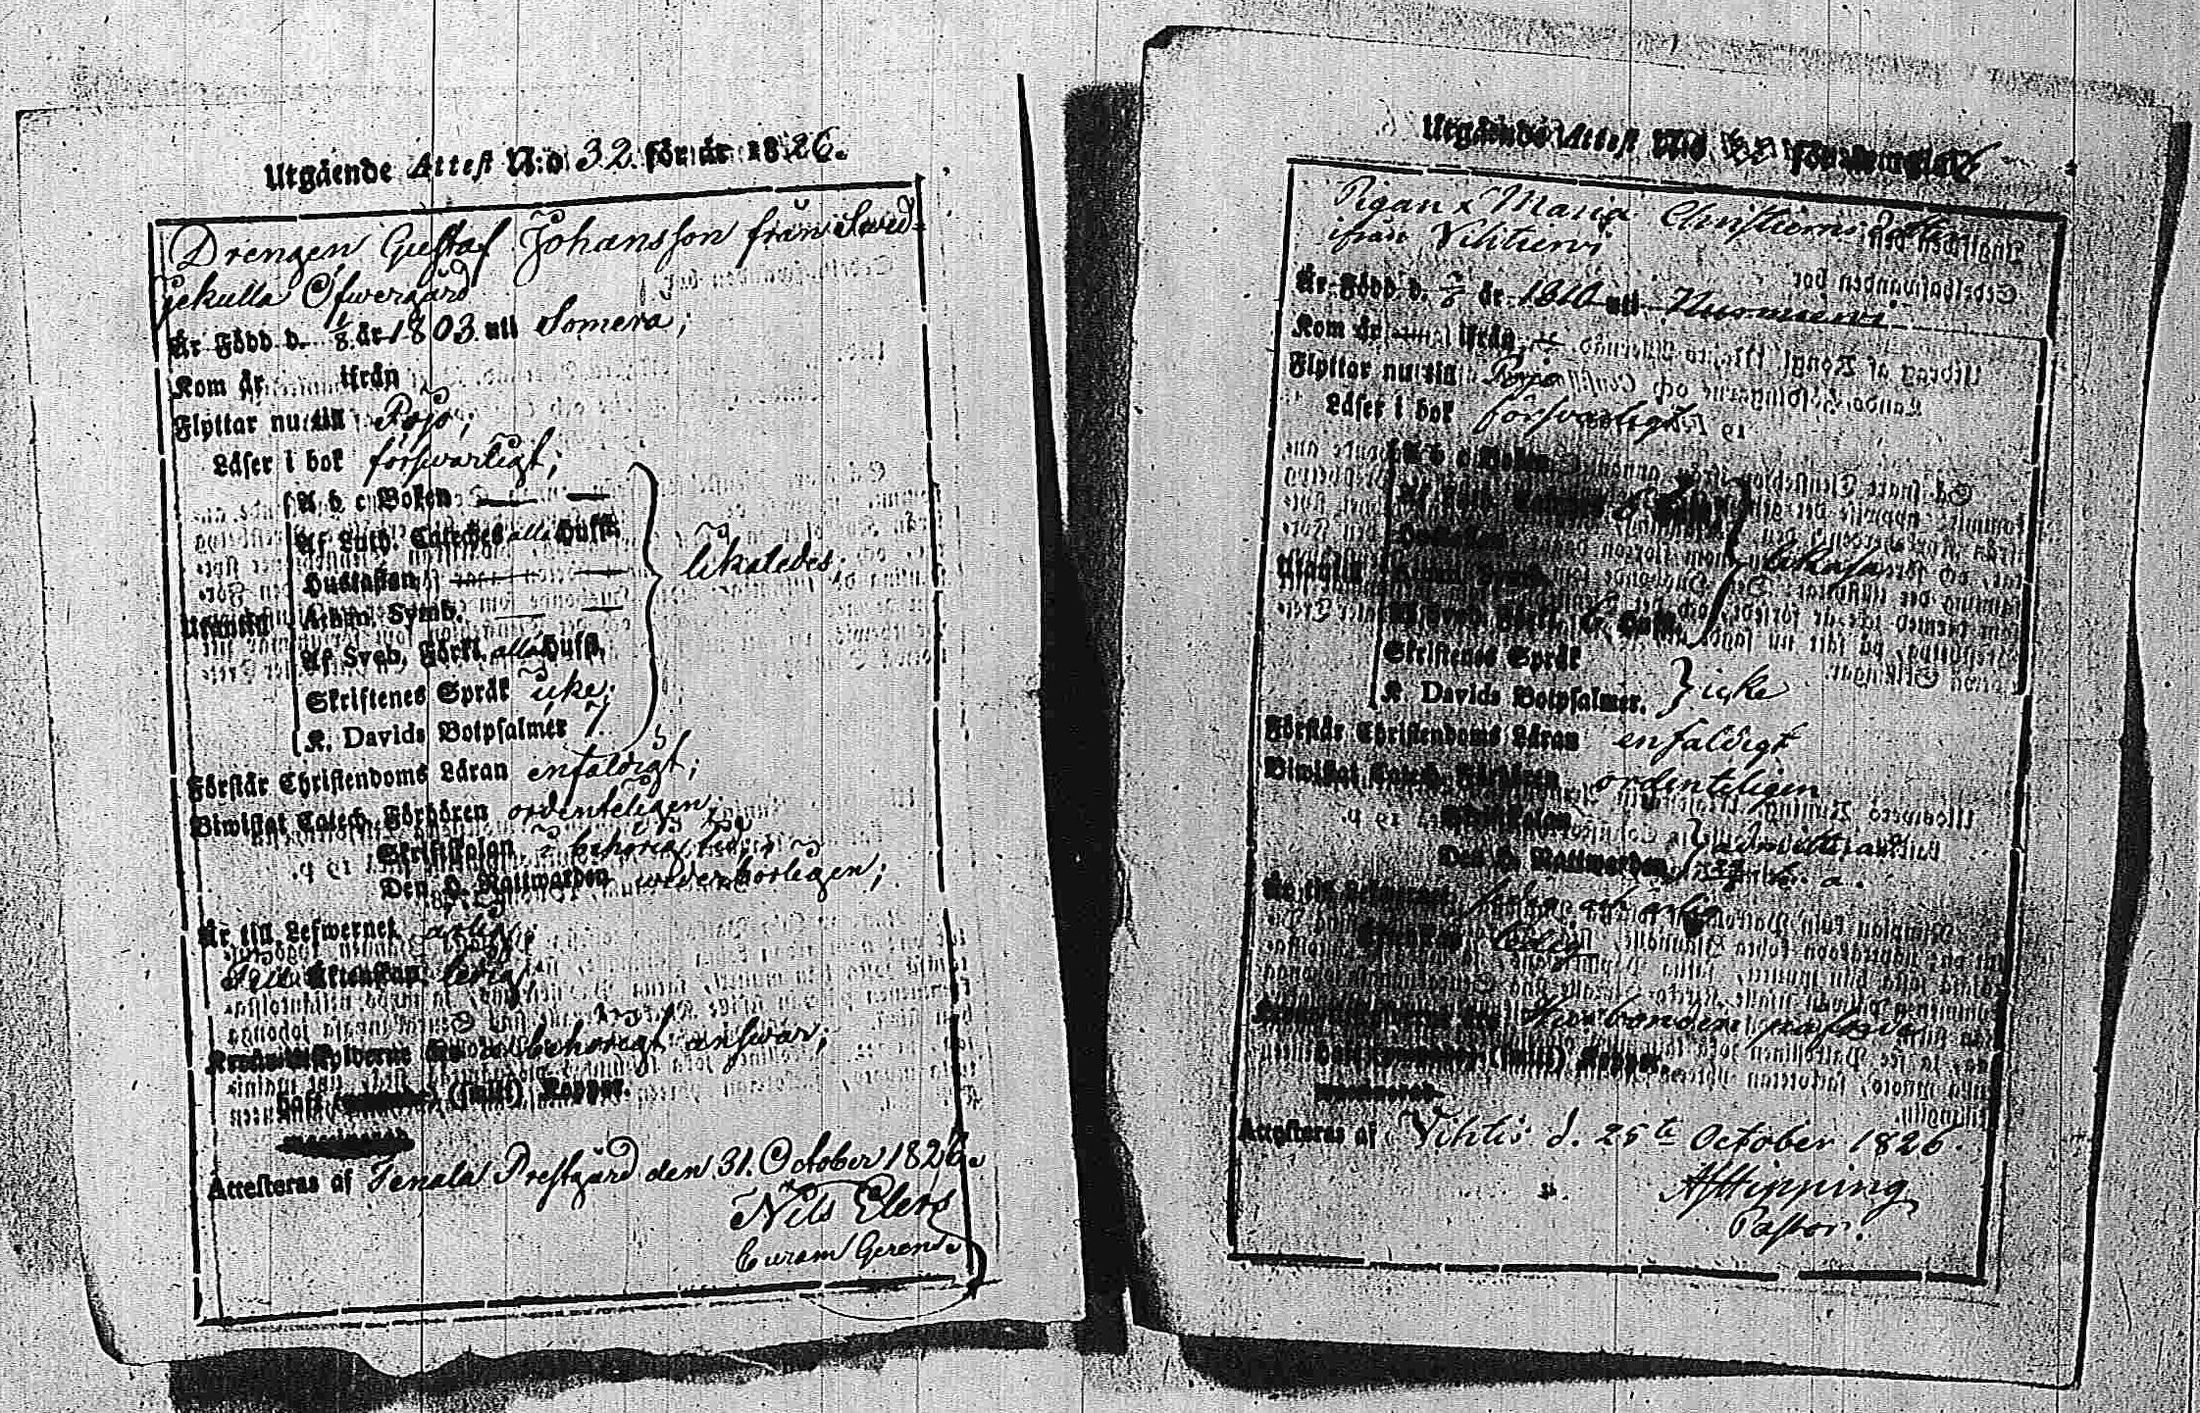 Utgående Attest N:o 32. för år 1826.
Drengen Gustaf Johansson från Swed=
jekulla Öfwergård
Är Född d. 1/8. år 1803. uti Somero;
Kom år ifrån
Flyttar nu till Pojo;
Läser i bok förswarligt;
A b c Boken — —
Af Luth. Cateches alla Hufst.
Hustaflan — —
Athan. Symb. — —
Utantill
likaledes;
Af Sveb. Förkl. alla Hufst.
Skriftenes Språk icke;
K. Davids Botpsalmer
Förstår Christendoms Läran enfaldigt;
Biwistat Catech. Förhören ordenteligen;
Skriftskolan i behörig tid;
Den H. Nattwarden wederbörligen;
Är till Lefwernet ärlig;
Till Äktenskap ledig;
behörigt answar;
Haft (smitt) Koppor.
Attesteras af Tenala Prestgård den 31. October 1826.
Nils Elers
Curam Gerens
Utgående Attest N:o för
Pigan Maria Christiernsdotter
ifrån Vihtijervi
Är Född d. år 1810 uti
Kom år — ifrån
Flyttar nu till Pojo
Läser i bok förswarligt
A b c Boken
Utantill
likaså
Af Sveb. Förkl. 6. Hufst.
Skriftenes Språk
K. Davids Botpsalmer. icke
Förstår Christendoms Läran enfaldigt
Biwistat Catech. Förhören ordenteligen
Skriftskolan
Den H. Nattwarden
Är till Lefwernet och ärlig
Äktenskap ledig
Haft (smitt) Koppor.
Attesteras af Vihtis d. 25te October 1826
Hipping
Pastor.